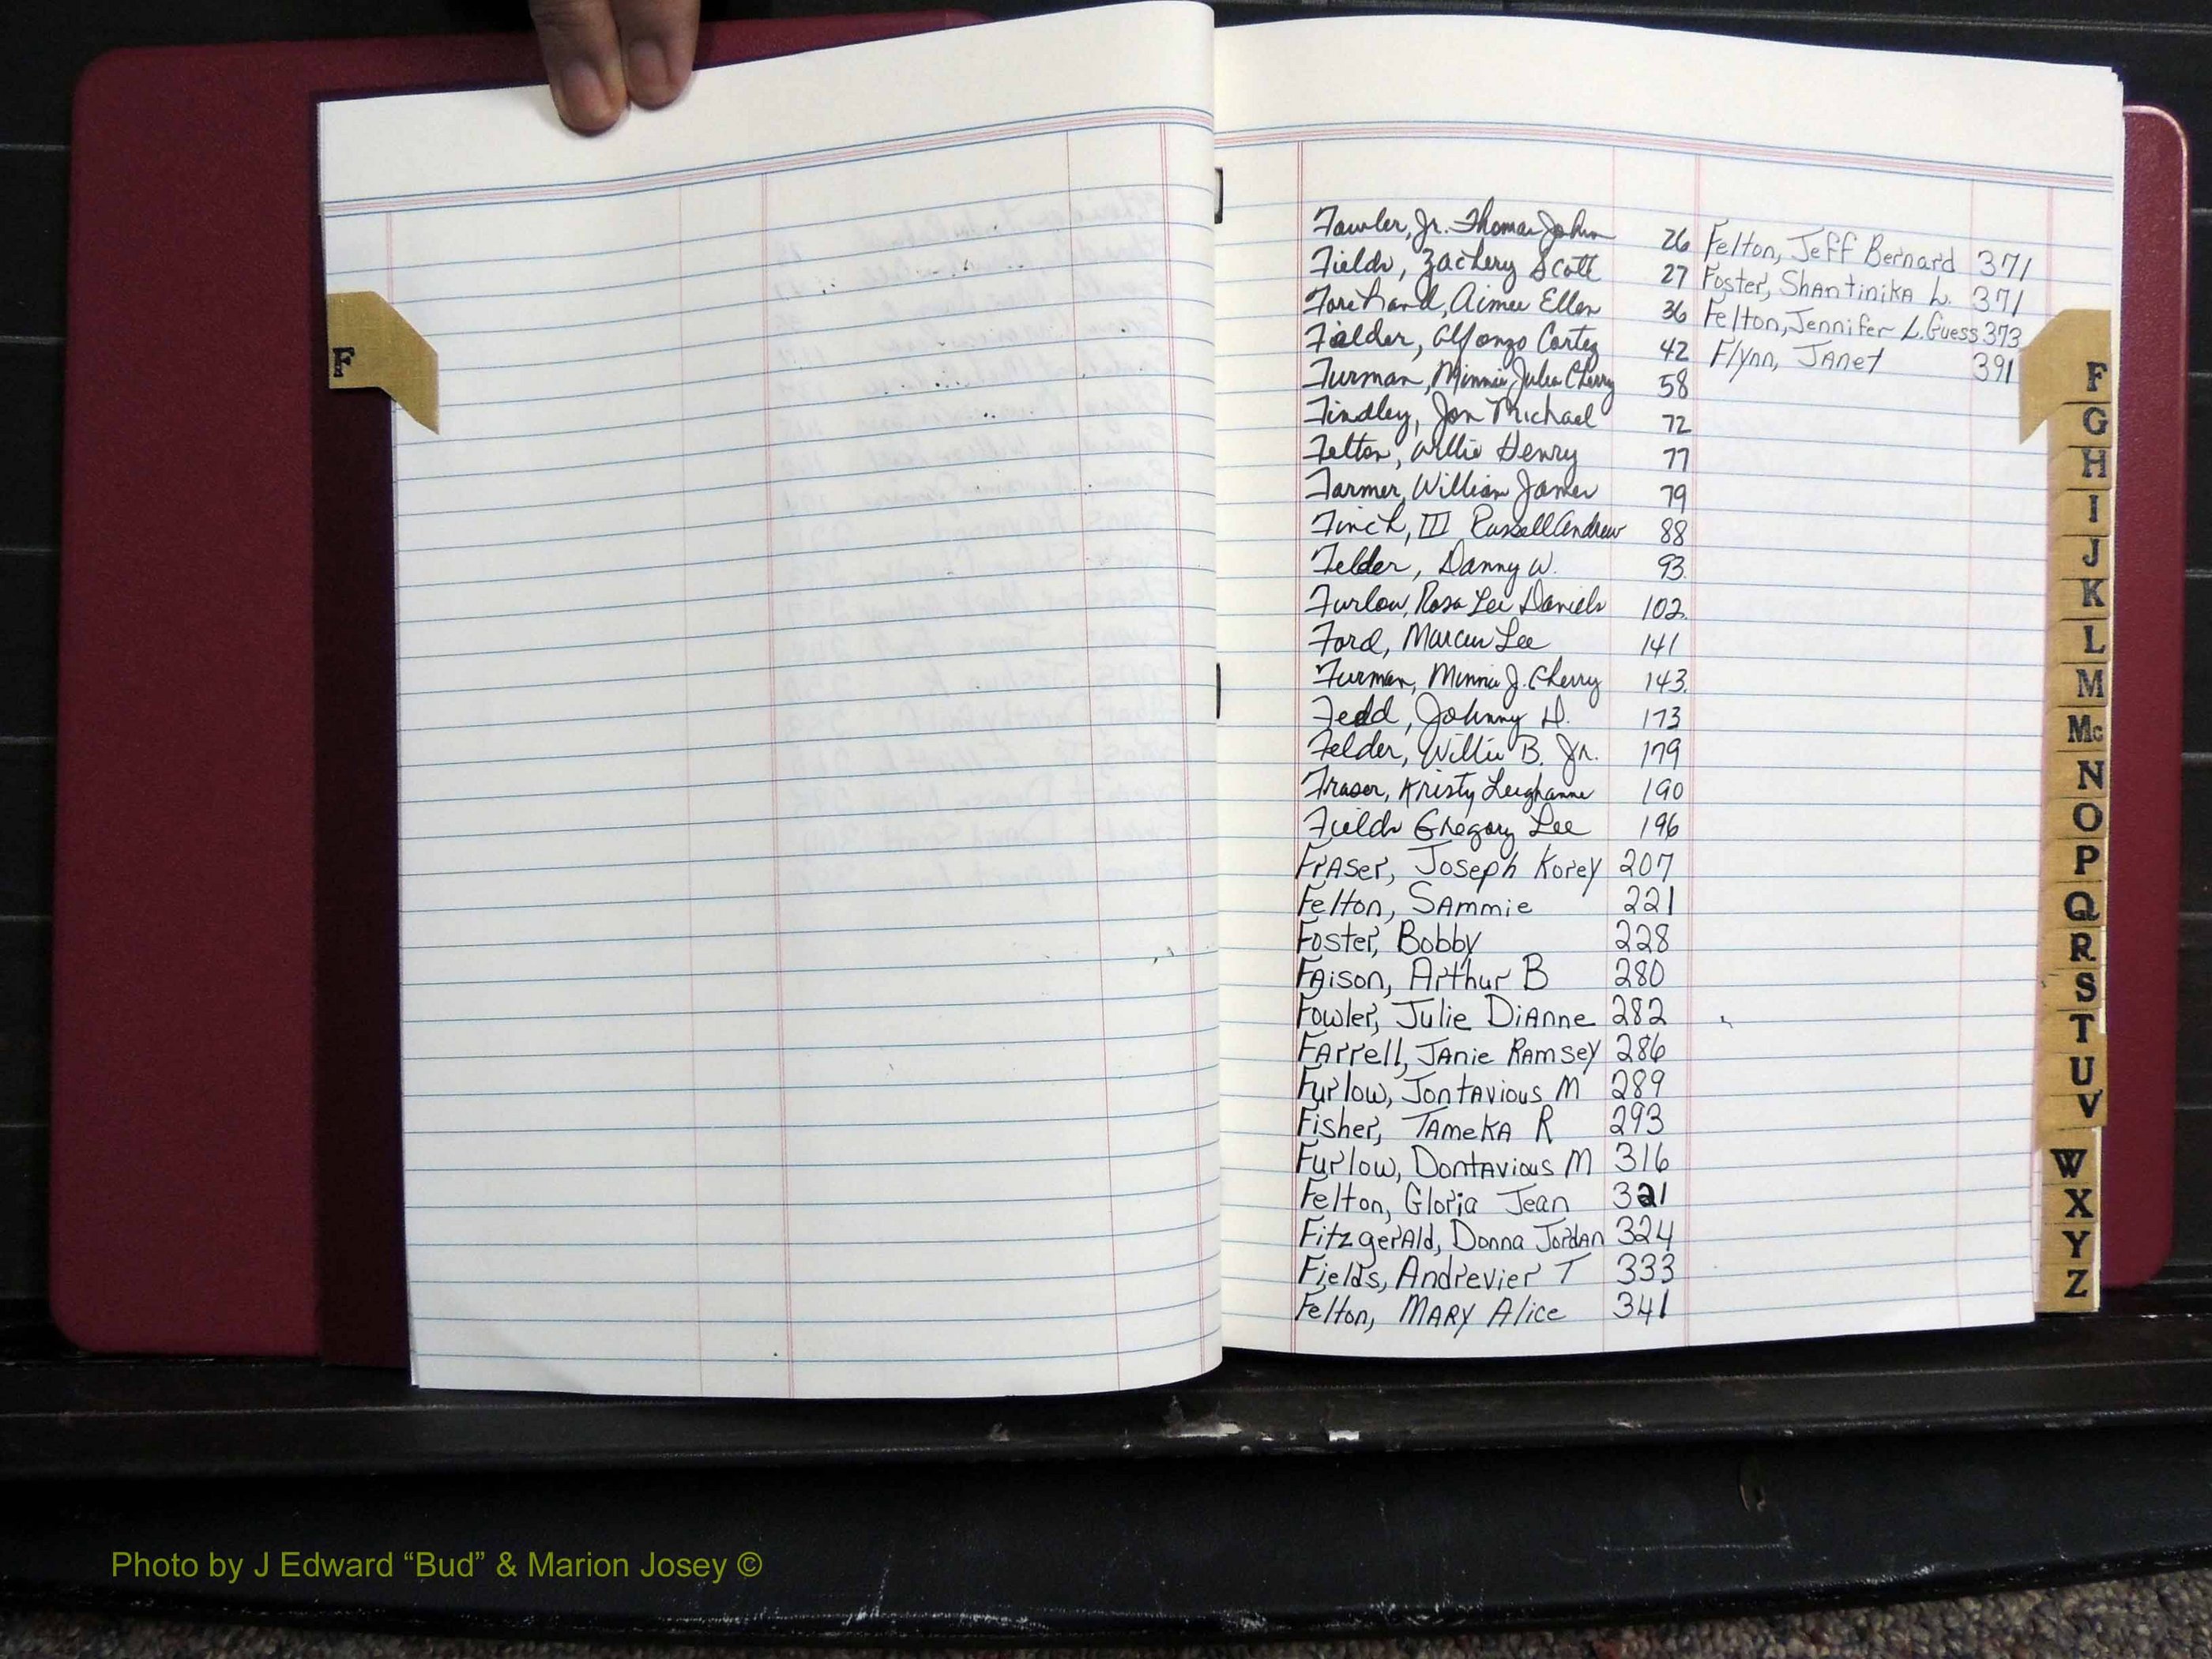 F
Fowler, Jr. Thomas John 26
Fields, Zachery Scott 27
Forehand, Aimee Ellen 36
Fielder, Alfonzo Cortez 42
Furman, Minnie Julia Cherry 58
Findley, Jon Michael 72
Felton, Willie Henry 77
Farmer, William James 79
Finch, III Russell Andrew 88
Felder, Danny W. 93
Furlow, Rosa Lee Daniels 102
Ford, Marcus Lee 141
Furman, Minnie J. Cherry 143
Fedd, Johnny D. 173
Felder, Willie B. Jr. 179
Fraser, Kristy Leighanne 190
Fields Gregory Lee 196
Fraser, Joseph Korey 207
Felton, Sammie 221
Foster, Bobby 228
Faison, Arthur B 280
Fowler, Julie Dianne 282
Farrell, Janie Ramsey 286
Furlow, Jontavious M 289
Fisher, Tameka R 293
Furlow, Dontavious M 316
Felton, Gloria Jean 321
Fitzgerald, Donna Jordan 324
Fields, Andrevier T 333
Felton, Mary Alice 341
Felton, Jeff Bernard 371
Foster, Shantinika L. 371
Felton, Jennifer L. Guess 373
Flynn, Janet 391
F
G
H
I
J
K
L
M
Mc
N
O
P
Q
R
S
T
U
V
W
X
Y
Z
Photo by J Edward “Bud” & Marion Josey ©